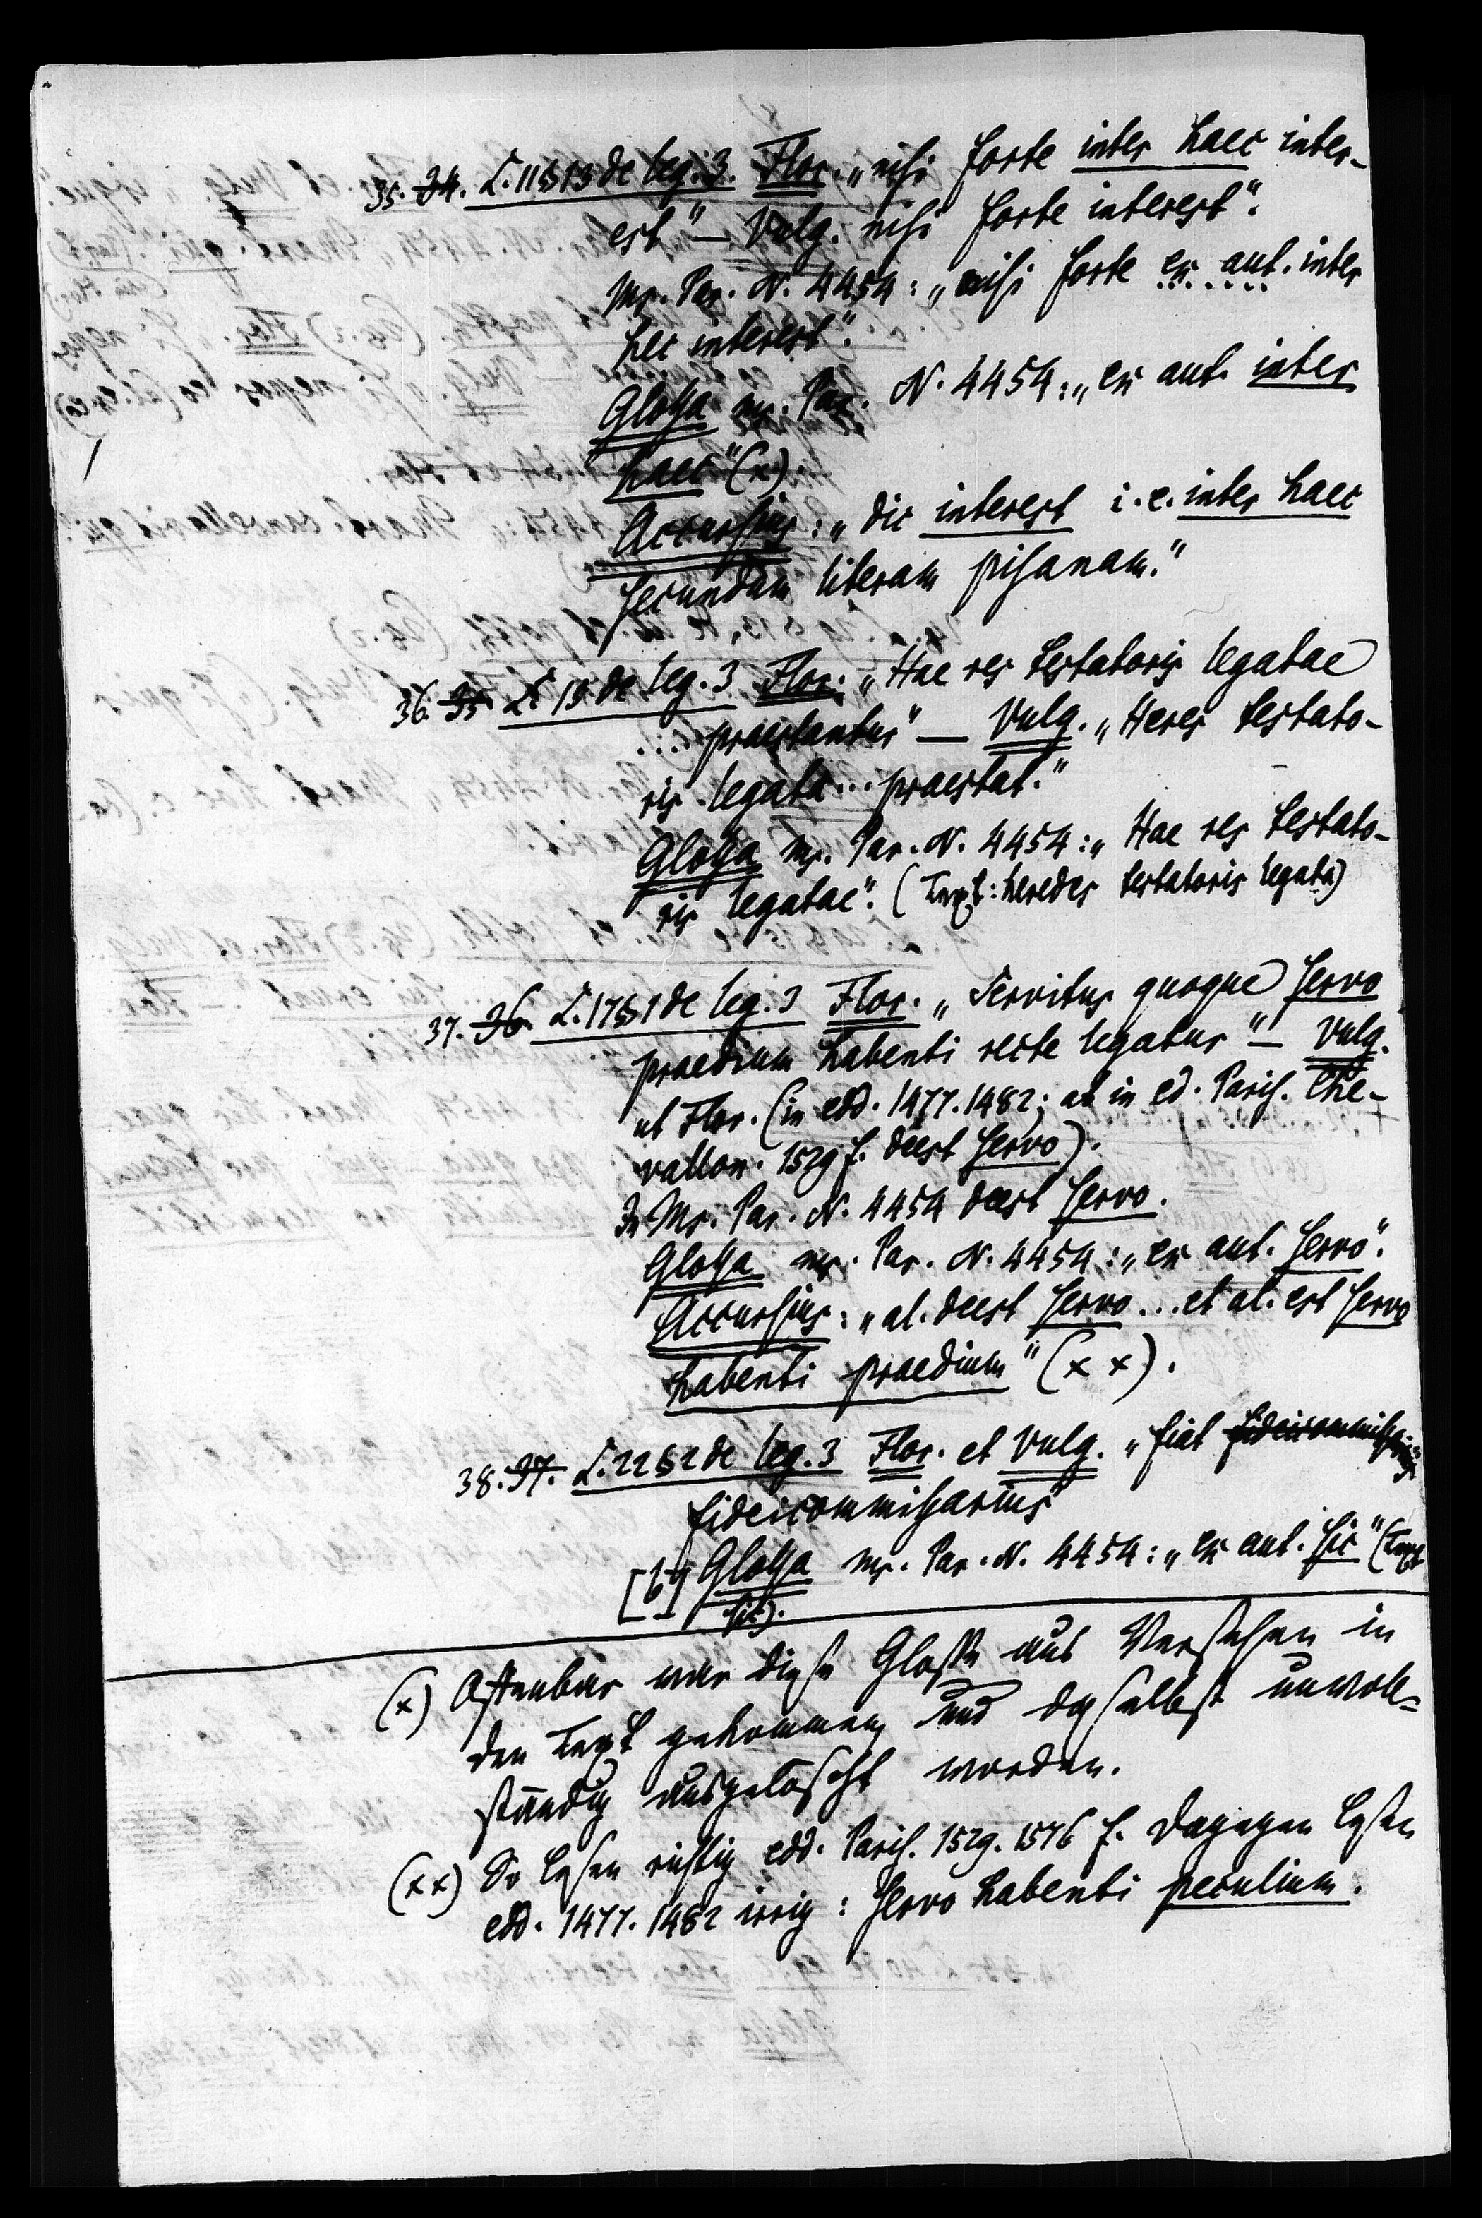 35. 34. L. 11 § 13 de leg. 3. Flor. „nisi forte inter haec inter-
est" — Vulg. nisi forte interest".
Ms. Par. N. 4454: „nisi forte en aut. inter
hec interest".
Glossa ms. Par. N. 4454: „en aut. inter
haec" (x).
Accursius: „dic interest i. e. inter haec
secundum literam pisanam."
36. 35 L 15 de leg. 3 Flor. „Hae res testatoris legatae
... praestantur" — Vulg. „Heres testato-
ris legata ... praestat."
Glossa ms. Par. N. 4454: „Hae res testato-
ris legatae". (Text: heredes testatoris legata)
37. 36. L. 17 § 1 de leg. 3 Flor. „Servitus quoque servo
praedium habenti recte legatur" — Vulg.
ut Flor. (in edd. 1477. 1482; at in ed. Paris. Che-
vallon. 1529 f. deest servo).
In Ms. Par. N. 4454 deest servo.
Glossa ms. Par. N. 4454: „en aut. servo".
Accursius: „al. deest servo ... et al. est servo
habenti praedium" (x x).
38. 37. L. 22 § 2 de leg. 3 Flor. et Vulg. „fiat
fideicommissarius"
Glossa ms. Par. N. 4454: „en aut. sic" (Text
sit).
(x) Offenbar war diese Glosse aus Versehen in
den Text gekommen, und daselbst unvoll-
ständig ausgelöscht worden.
(xx) So lesen richtig edd. Paris. 1529. 1576 f. Dagegen lesen
edd. 1477. 1482 irrig: servo habenti peculium.